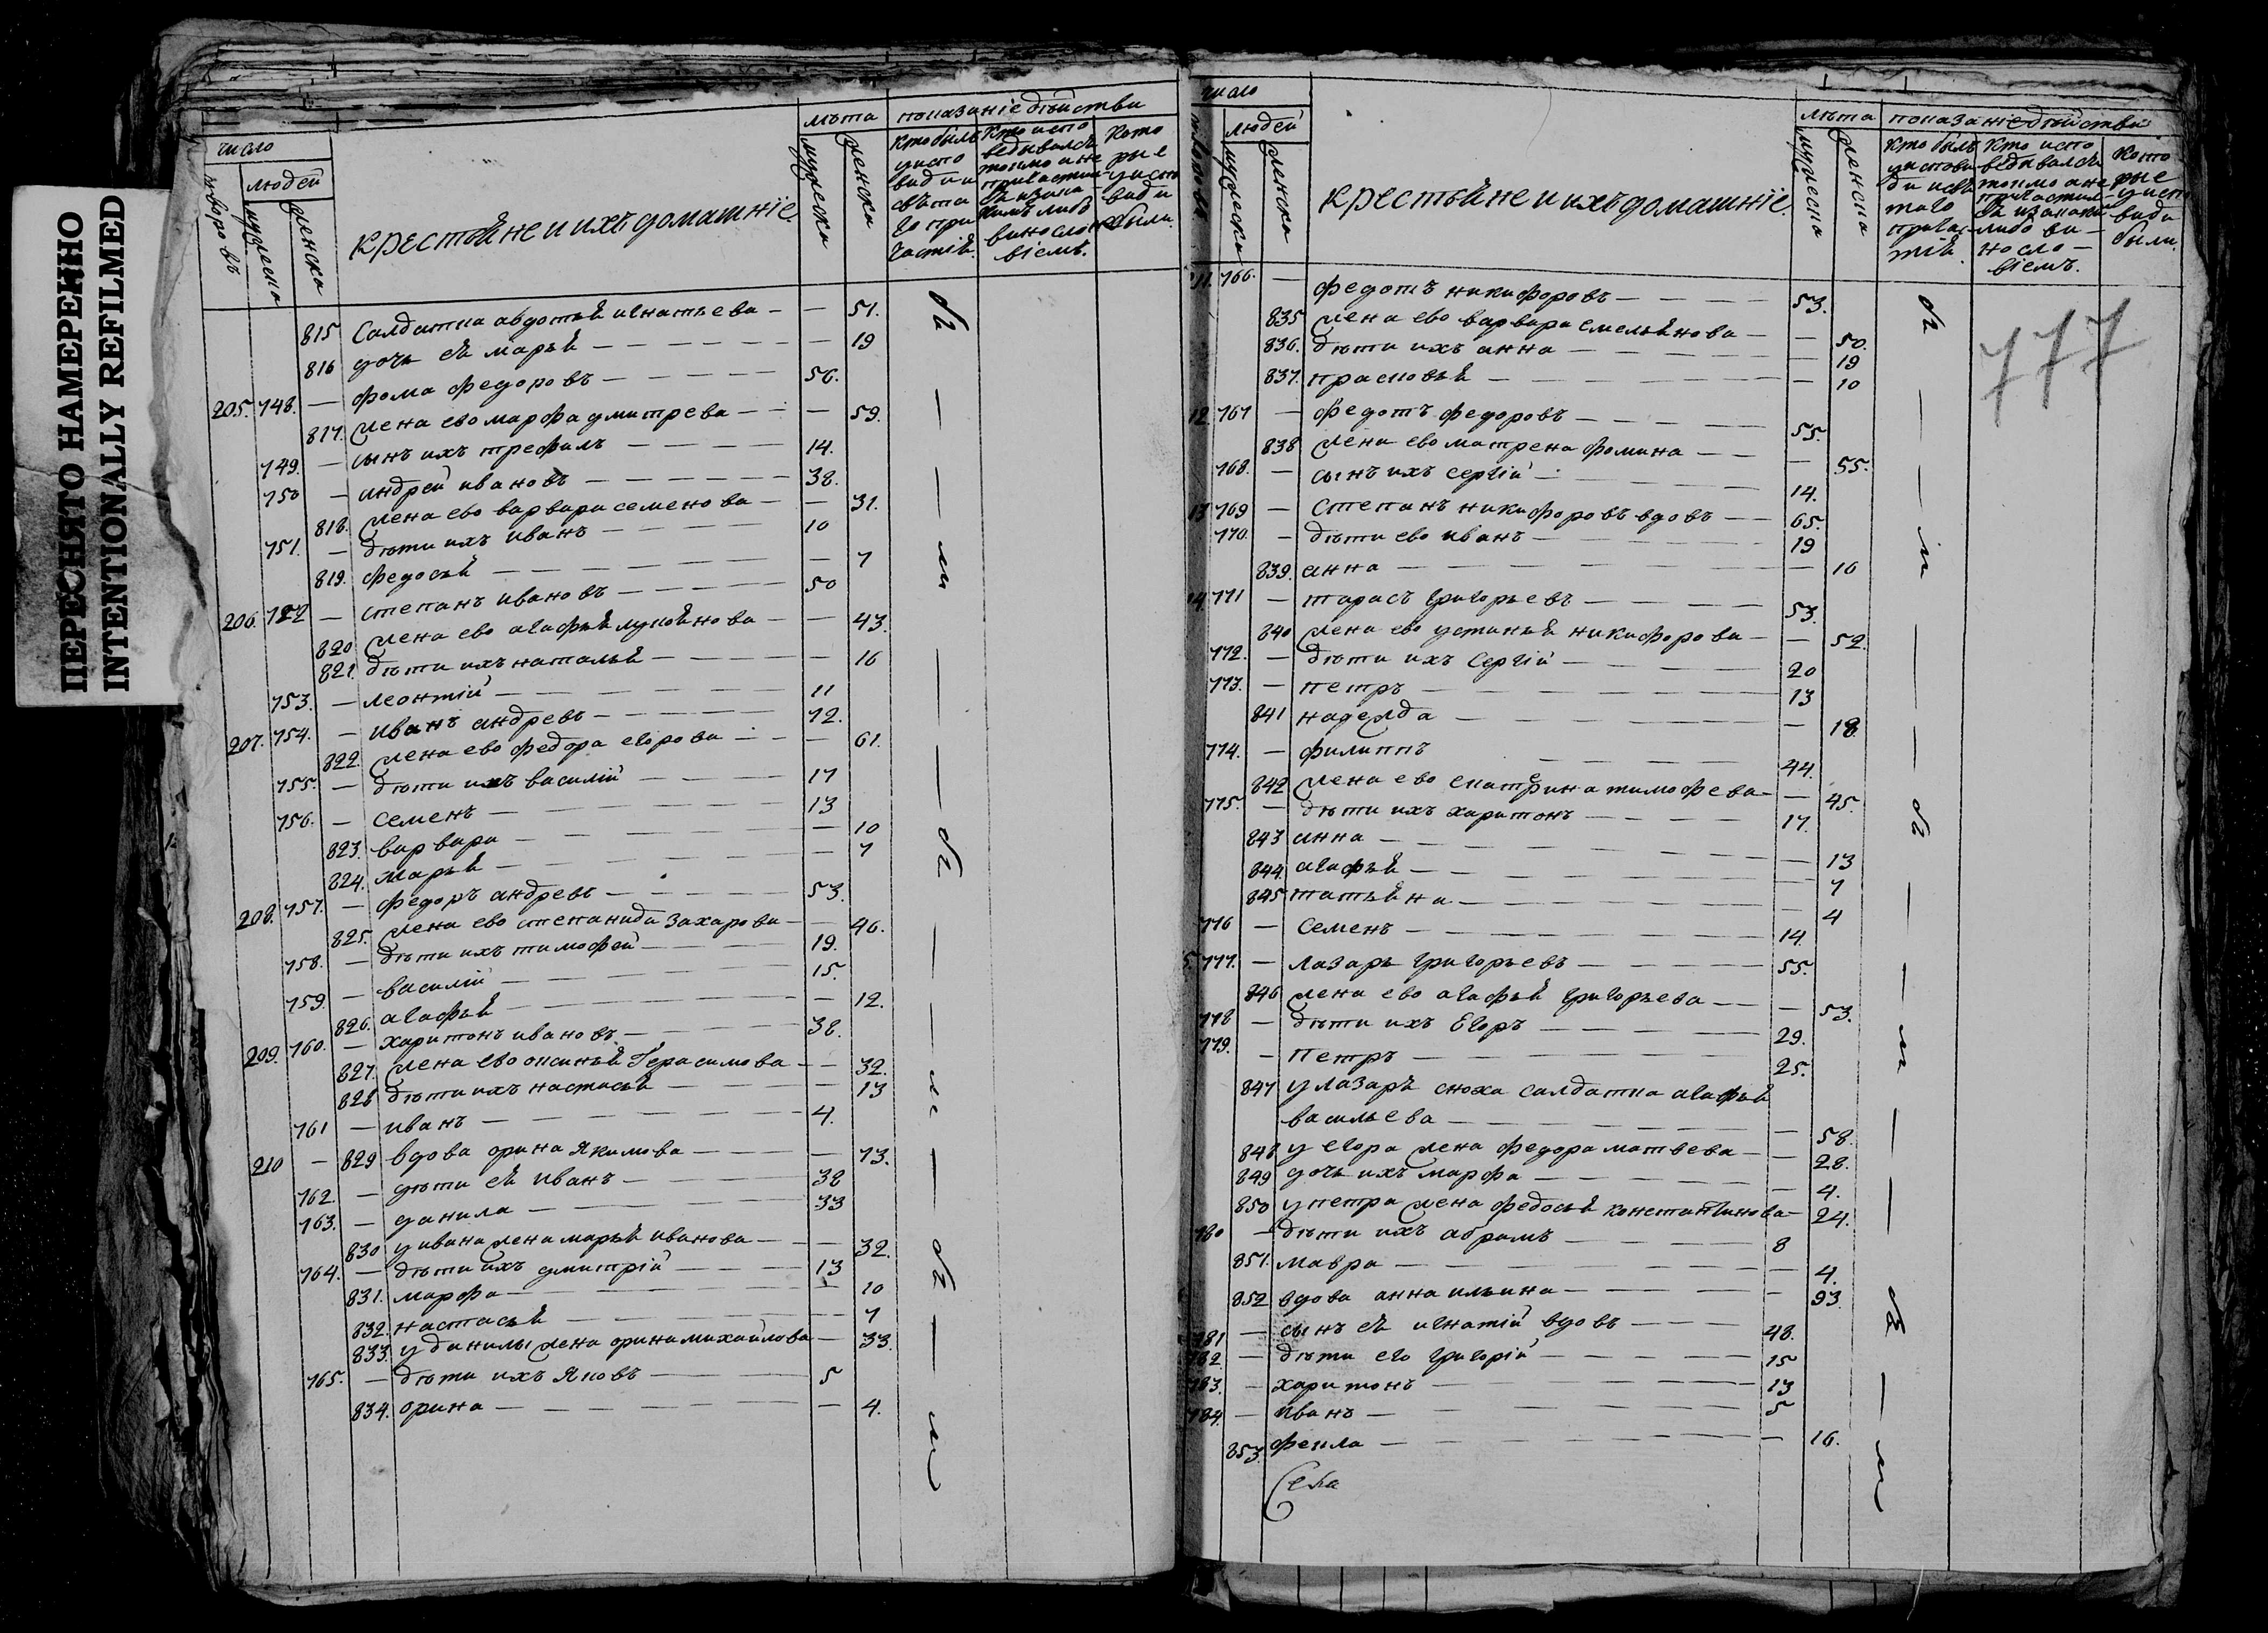 ПЕРЕСНЯТО НАМЕРЕННО
INTENTIONALLY REFILMED
число
людей
дворовъ
мужеска
женска
крестьяне и ихъ домашніе
лѣта
мужеска
женска
показаніе дѣйства
кто былъ у исповиди и свѣта го причастія
кто исповедывался токмо а не причастился и за какимъ либо винословіемъ.
которые у исповиди не были.
815 Салдатка авдотья игнатьева — — 51.
816 дочь ея марья — — 19
205. 748. — фома федоровъ — 56.
817. жена ево марфа дмитрева — — 59.
749. — сынъ ихъ трефилъ — 14.
750 — андрей ивановъ — 38.
818. жена ево варвара семенова — — 31.
751. — дѣти ихъ иванъ — 10
819. федосья — — 7
206. 752 — степанъ ивановъ — 50
820 жена ево агафья лукоянова — — 43.
821. дѣти ихъ наталья — — 16
753. — леонтій — 11
207. 754. — иванъ андревъ — 72.
822. жена ево федора егорова — — 61.
755. — дѣти ихъ василій — 17
756. — семенъ — 13
823. варвара — — 10
824. марья — — 7
208. 757. — федоръ андревъ — 53.
825. жена ево степанида захарова — — 46.
758. — дѣти ихъ тимофей — 19.
759. — василій — 15.
826. агафья — — 12.
209. 760. — харитонъ ивановъ — 38.
827. жена ево оксинья Герасимова — — 32.
828 дѣти ихъ настасья — — 13
761 — иванъ — 4.
210 — 829 вдова орина Якимова — — 73.
762. — дѣти ея иванъ — 38
763. — данила — 33
830 у ивана жена марья иванова — — 32.
764. — дѣти ихъ дмитрій — 13
831. марфа — — 10
832. настасья — — 7
833. у данилы жена орина михайлова — 33.
765. — дѣти ихъ Яковъ — 5
834. орина — — 4.
число
людей
дворовъ
мужеска
женска
крестьяне и ихъ домашніе.
лѣта
мужеска
женска
показаніе дѣйства
кто былъ у исповиди и свѣтаго причастія.
кто исповедывался токмо а не причастился и за каким либо винословіемъ.
которые у исповиди не были.
777
11. 766. — федотъ никифоровъ — 53.
835 жена ево варвара емельянова — — 50.
836. дѣти ихъ анна — — 19
837. прасковья — — 10
12. 767 — федотъ федоровъ — 55.
838 жена ево матрена фомина — — 55.
768. — сынъ ихъ сергій — 14.
13 769 — степанъ никифоровъ вдовъ — 65.
770. — дѣти ево иванъ — 19
839. анна — — 16
14 771 — тарасъ григорьевъ — 53.
840 жена ево устинья никифорова — — 52.
772. — дѣти ихъ Сергій — 20
773. — петръ — 13
841 надежда — — 18.
774. — филиппъ — 44.
842 жена ево екатерина тимофева — — 45.
775. — дѣти ихъ харитонъ — 17.
843 анна — — 13
844. агафья — — 7
845 татьяна — — 4
776 — Семенъ — 14.
5. 777. — лазарь григорьевъ — 55.
846 жена ево агафья григорьева — — 53.
778 — дѣти ихъ Егоръ — 29.
779. — петръ — 25.
847 у лазаря сноха салдатка агафья
васильева — — 58.
848 у егора жена федора матвева — — 28.
849 дочь ихъ марфа — — 4.
850 у петра жена федосья константинова — 24.
780 — дѣти ихъ абрамъ — 8
851. мавра — — 4.
852 вдова анна ильина — — 93.
781 — сынъ ея игнатій вдовъ — 48.
782. — дѣти его григорій — 15
783. — харитонъ — 13
784. — иванъ — 5
853. фекла — — 16.
Села